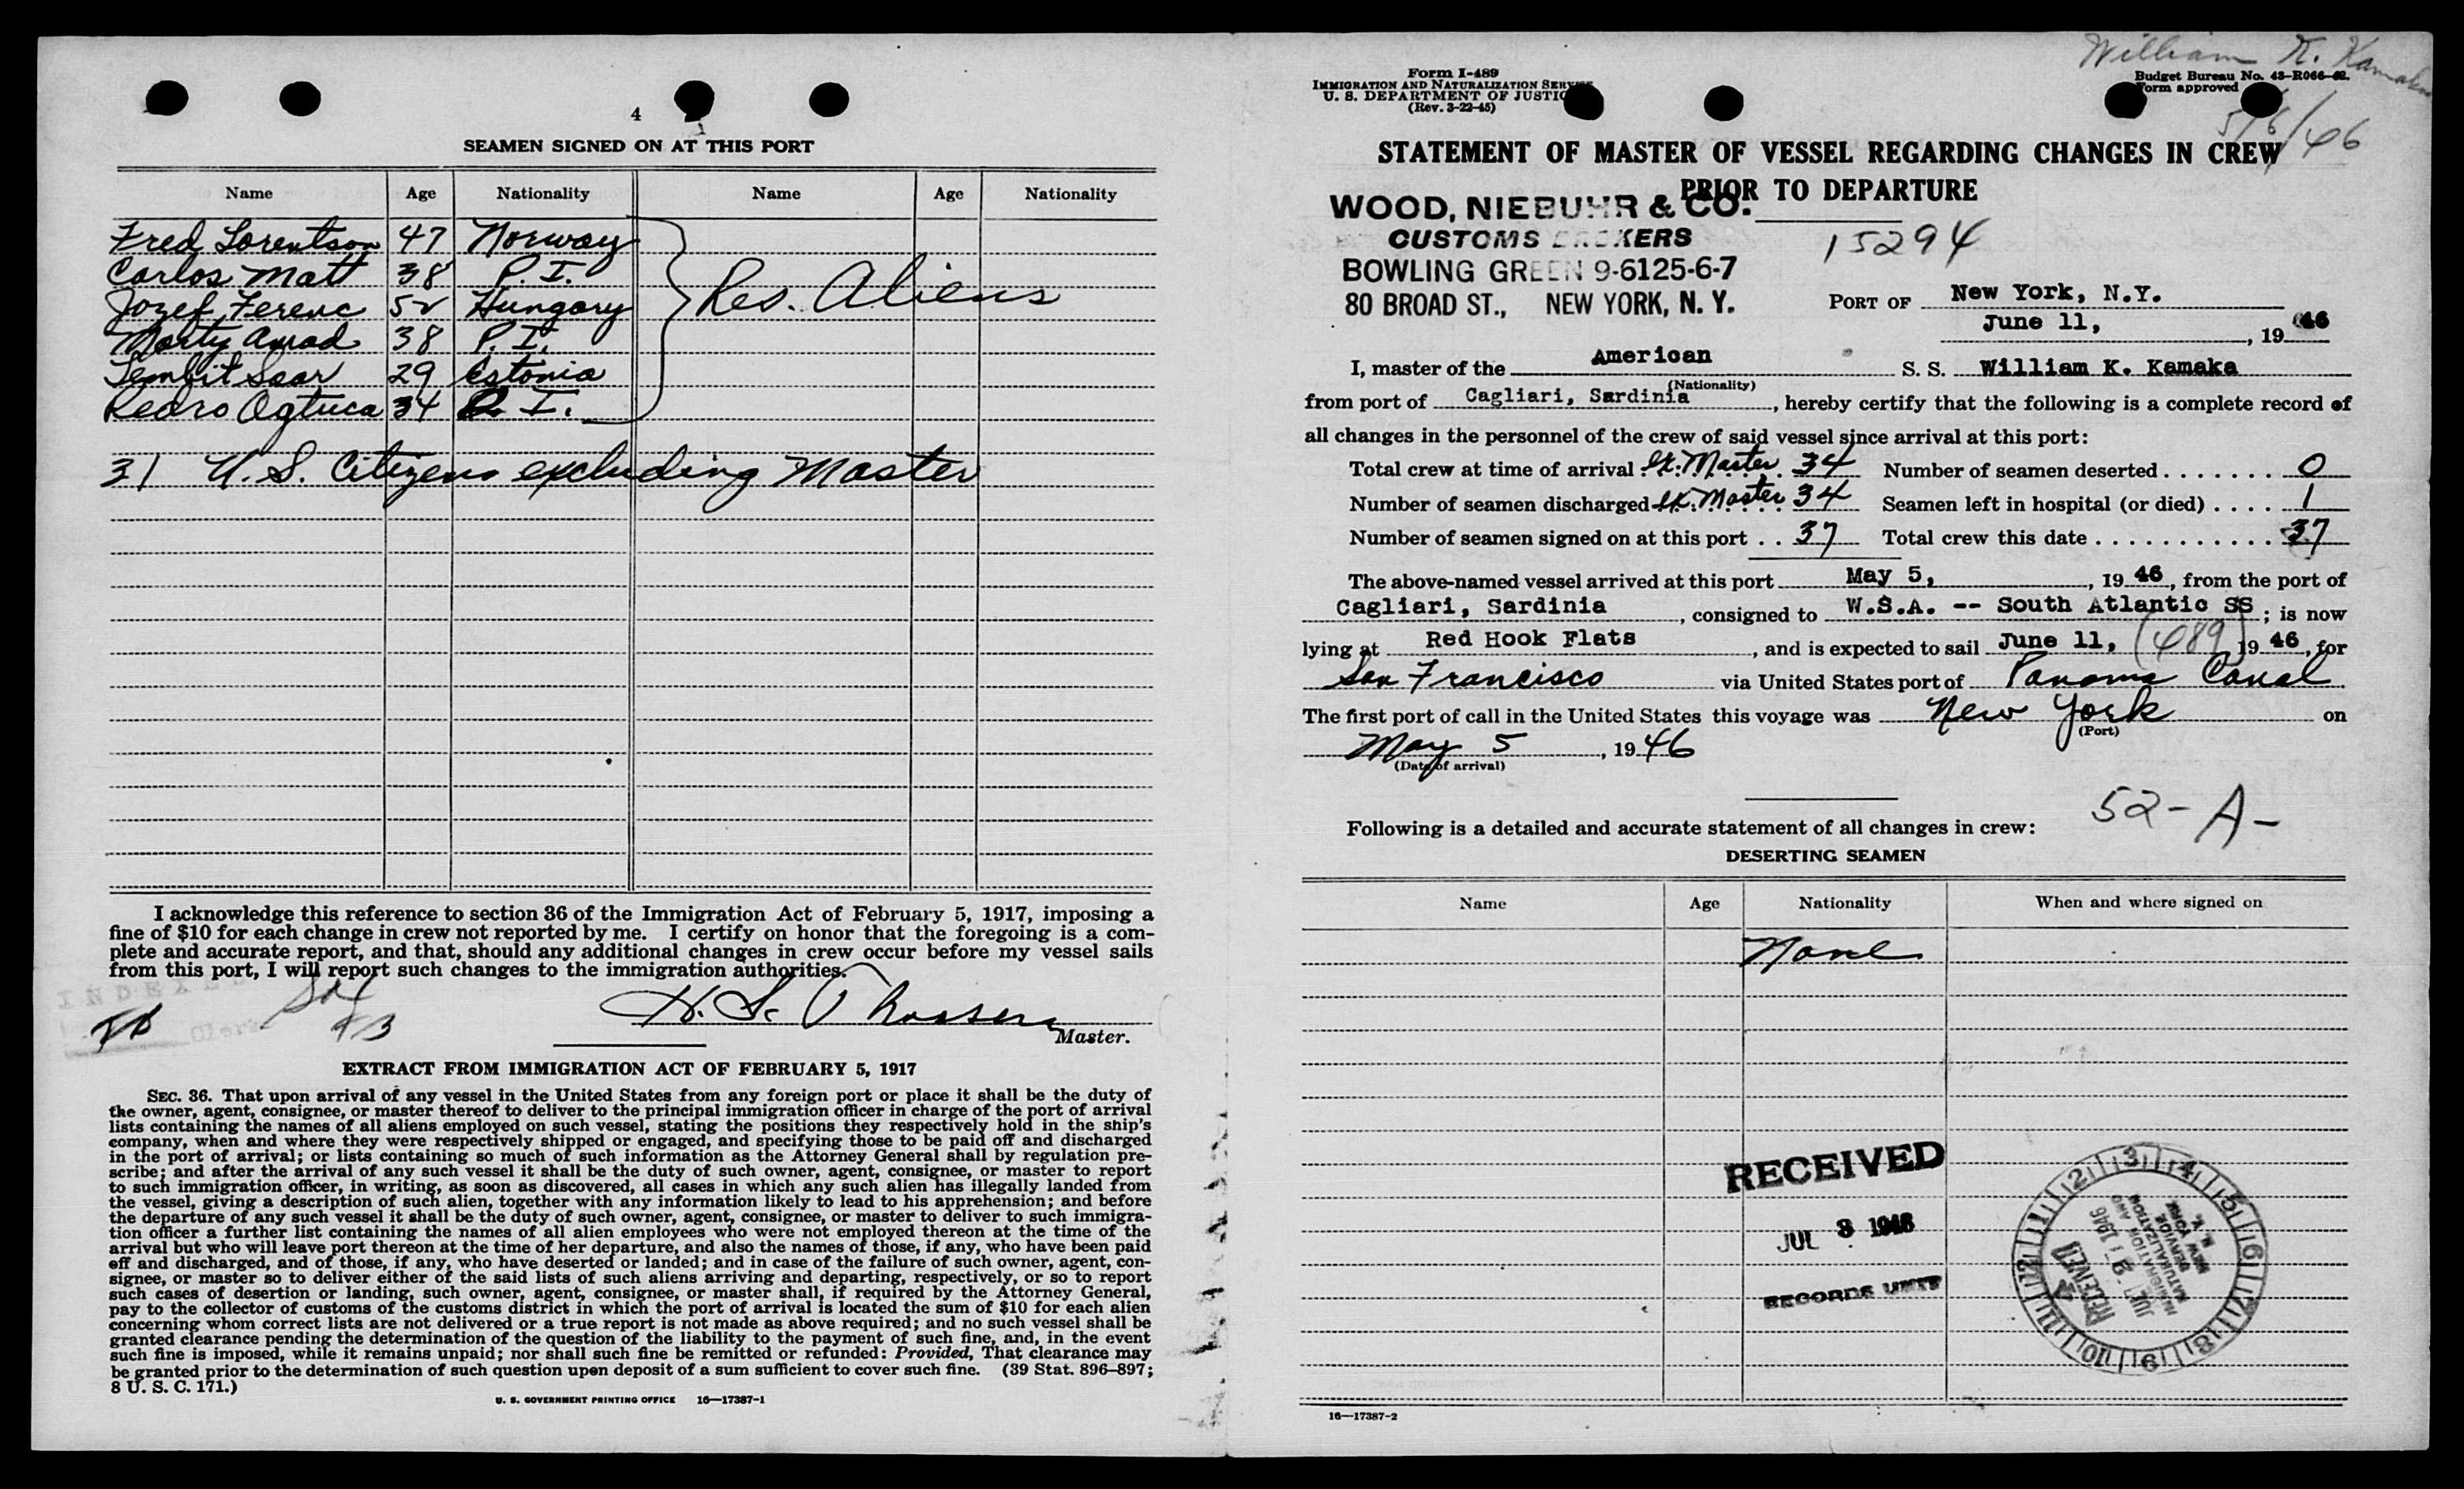 4
SEAMEN SIGNED ON AT THIS PORT
Name Age Nationality Name Age Nationality
Fred Lorentson 47 Norway
Carlos Matt 38 P.I.
Jozef Ferenc 52 Hungary
Res. Aliens
Marty Amad 38 P.I.
Lembit Saar 29 Estonia
Pedro Agtuca 34 P.I.
31 U.S. Citizens excluding Master
I acknowledge this reference to section 36 of the Immigration Act of February 5, 1917, imposing a
fine of $10 for each change in crew not reported by me. I certify on honor that the foregoing is a com-
plete and accurate report, and that, should any additional changes in crew occur before my vessel sails
from this port, I will report such changes to the immigration authorities.
INDEXED
H. S.
Master.
EXTRACT FROM IMMIGRATION ACT OF FEBRUARY 5, 1917
SEC. 36. That upon arrival of any vessel in the United States from any foreign port or place it shall be the duty of
the owner, agent, consignee, or master thereof to deliver to the principal immigration officer in charge of the port of arrival
lists containing the names of all aliens employed on such vessel, stating the positions they respectively hold in the ship's
company, when and where they were respectively shipped or engaged, and specifying those to be paid off and discharged
in the port of arrival; or lists containing so much of such information as the Attorney General shall by regulation pre-
scribe; and after the arrival of any such vessel it shall be the duty of such owner, agent, consignee, or master to report
to such immigration officer, in writing, as soon as discovered, all cases in which any such alien has illegally landed from
the vessel, giving a description of such alien, together with any information likely to lead to his apprehension; and before
the departure of any such vessel it shall be the duty of such owner, agent, consignee, or master to deliver to such immigra-
tion officer a further list containing the names of all alien employees who were not employed thereon at the time of the
arrival but who will leave port thereon at the time of her departure, and also the names of those, if any, who have been paid
off and discharged, and of those, if any, who have deserted or landed; and in case of the failure of such owner, agent, con-
signee, or master so to deliver either of the said lists of such aliens arriving and departing, respectively, or so to report
such cases of desertion or landing, such owner, agent, consignee, or master shall, if required by the Attorney General,
pay to the collector of customs of the customs district in which the port of arrival is located the sum of $10 for each alien
concerning whom correct lists are not delivered or a true report is not made as above required; and no such vessel shall be
granted clearance pending the determination of the question of the liability to the payment of such fine, and, in the event
such fine is imposed, while it remains unpaid; nor shall such fine be remitted or refunded: Provided, That clearance may
be granted prior to the determination of such question upon deposit of a sum sufficient to cover such fine. (39 Stat. 896–897;
8 U. S. C. 171.)
U. S. GOVERNMENT PRINTING OFFICE 16—17387-1
William K. Kamaka
Form I-489
IMMIGRATION AND NATURALIZATION SERVICE
U. S. DEPARTMENT OF JUSTICE
(Rev. 3-22-45)
Budget Bureau No. 43-R066-42.
Form approved
5/6/46
STATEMENT OF MASTER OF VESSEL REGARDING CHANGES IN CREW
PRIOR TO DEPARTURE
WOOD, NIEBUHR & CO.
CUSTOMS BROKERS
BOWLING GREEN 9-6125-6-7
80 BROAD ST., NEW YORK, N. Y.
15294
PORT OF New York, N.Y.
June 11, , 19 46
I, master of the American S. S. William K. Kamaka
(Nationality)
from port of Cagliari, Sardinia , hereby certify that the following is a complete record of
all changes in the personnel of the crew of said vessel since arrival at this port:
Total crew at time of arrival Ex. Master 34 Number of seamen deserted . . . . . . . 0
Number of seamen discharged Ex. Master 34 Seamen left in hospital (or died) . . . . 1
Number of seamen signed on at this port . . 37 Total crew this date . . . . . . . . . . . . 37
The above-named vessel arrived at this port May 5, , 19 46, from the port of
Cagliari, Sardinia , consigned to W.S.A. -- South Atlantic SS ; is now
lying at Red Hook Flats , and is expected to sail June 11, (689) 19 46, for
San Francisco via United States port of Panama Canal
The first port of call in the United States this voyage was New York on
(Port)
May 5 , 19 46
(Date of arrival)
52-A-
Following is a detailed and accurate statement of all changes in crew:
DESERTING SEAMEN
Name Age Nationality When and where signed on
None
RECEIVED
JUL 3 1946
RECORDS UNIT
1 2 3 4 5 6 7 8 9 10 11 12
RECEIVED
JUL 2 1946
IMMIGRATION AND
NATURALIZATION
SERVICE
NEW YORK
N. Y.
16—17387-2